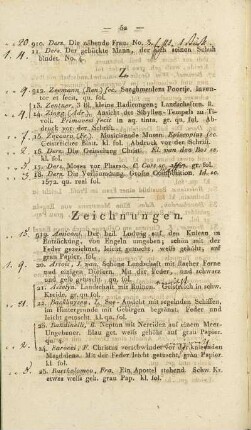 — 62 —
910. Ders. Die nähende Frau. No. 3.
11. Ders. Der gebückte Mann, der sich seinen Schuh bindet. No. 4.
Z
12. Zeemann (Ren.) fec.
13. Zeutner, 3 Bl. kleine Radirungen; Landschaften. 8.
14. Zingg (Adr.). Ansicht des Sibyllen-Tempels zu Tivoli. Primavesi fecit in aq. tinta. gr. qu. fol. Abdruck vor der Schrift.
Musicirende Mann.
Geistreiches Blatt. kl. fol. Abdruck vor der Schrift.
16. Ders. Die Geisselung Christi.
17. Ders. Moses vor Pharao. gr. qu. fol.
18. Ders. Die Verläumdung. Große Composition. Id. sc. 1572. qu. reel fol.
Zeichnungen.
919. Amiconi. Der heil. Ludwig auf den Knieen in Entzückung, von Engeln umgeben; schön mit der Feder gezeichnet, leicht getuscht, weiß gehöht, auf grau Papier. fol.
20. Artois, J. van. Schöne Landschaft mit flacher Ferne und einigen Dörfern. Mit der Feder, und schwarz und gelb getuscht. qu. fol.
21. Asselyn. Landschaft mit Ruinen. Geistreich in schw. Kreide. qr. qu. fol.
22. Backhuysen, L. See-Ansicht mit segelnden Schiffen, im Hintergrunde mit Gebirgen begränzt. Feder und leicht getuscht. kl. qu. fol.
23. Bandinelli, B. Neptun mit Nereiden auf einem Meer-Ungeheuer. Blau get. weiß gehöht auf grau Papier. qu. fol.
24. Baroccio, F. Christus verschwindet vor der knieenden Magdalena. Mit der Feder leicht getuscht, grau Papier. kl. fol.
25. Bartholomeo, Fra. Ein Apostel stehend. Schw. Kr. etwas weiß geh. grau Pap. kl. fol.